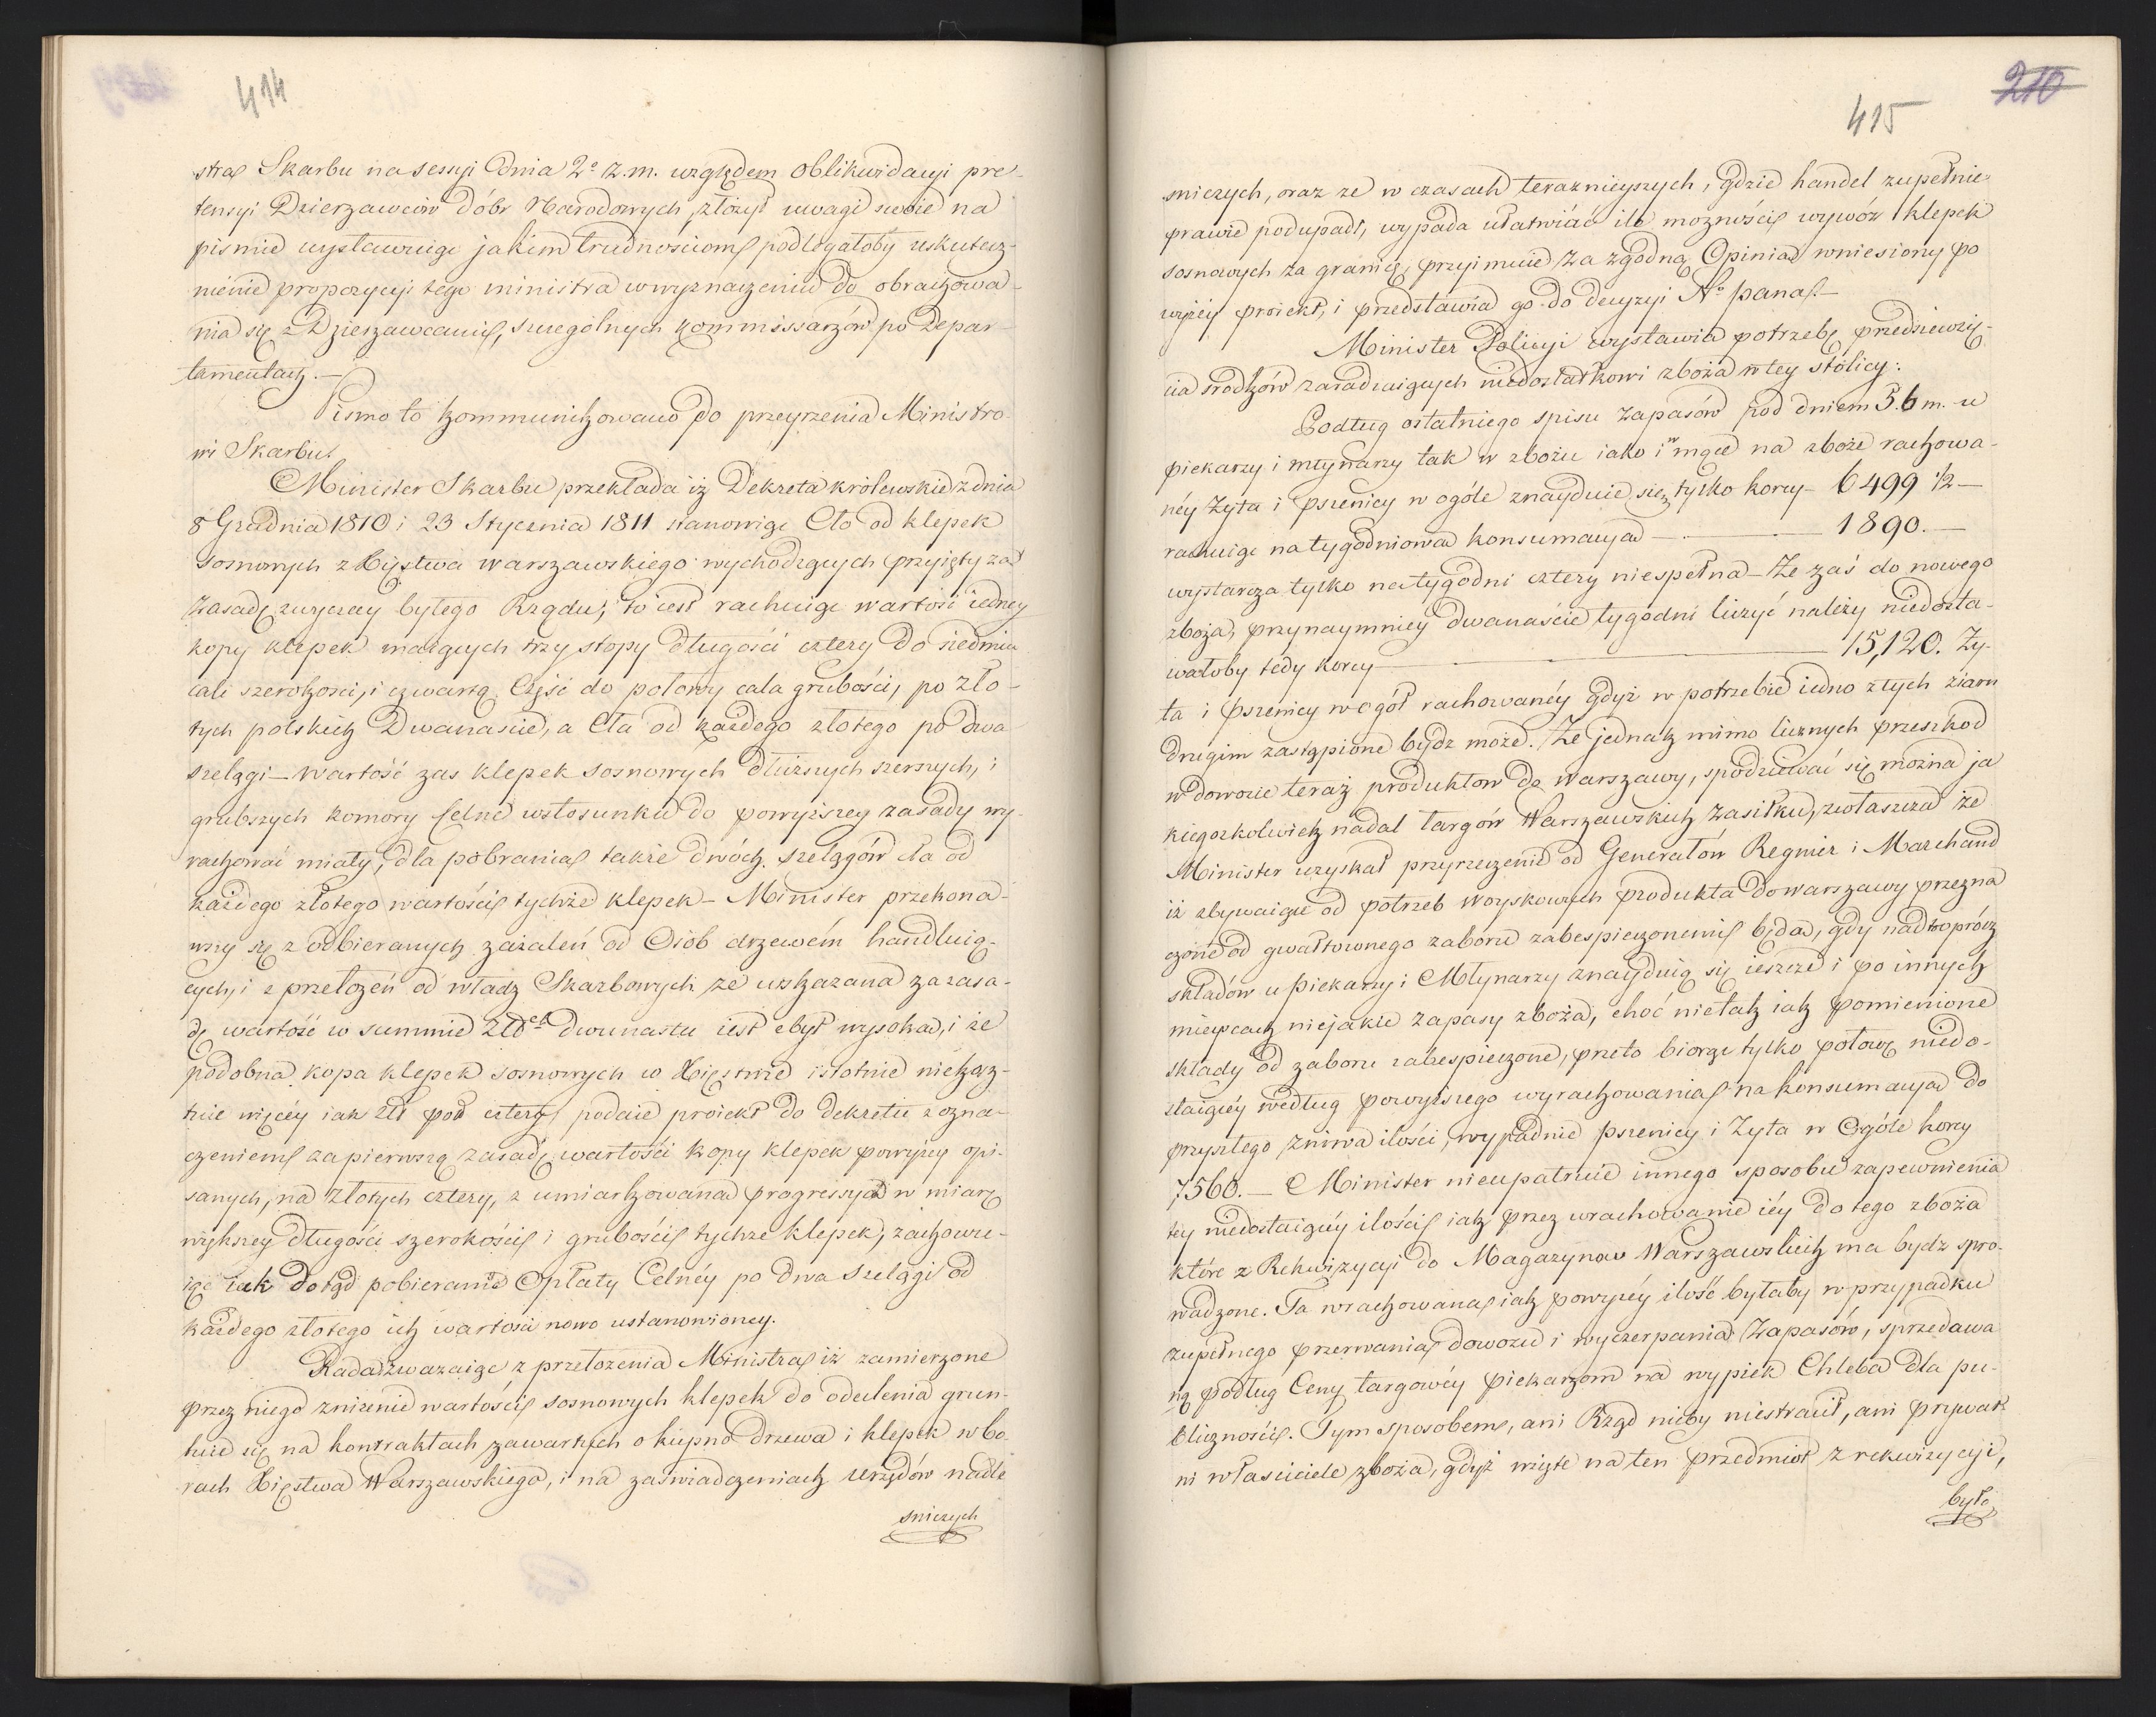 414
stra Skarbu na sessyi Dnia 2º z.m. względem Oblikwidacyi pre-
tensyi Dzierzawców Dóbr Narodowych, złożył uwagi swoie na
pismie wystawuiąc jakim trudnościom podlegałoby uskutecz-
nienie propozycyi tego ministra w wyznaczeniu do obrachowa-
nia się z Dzierzawcami, szczególnych Kommissarzów po Depar-
tamentach.—
Pismo to kommunikowano do przeyrzenia Ministro-
wi Skarbu.
Minister Skarbu przekłada iż Dekreta królewskie z dnia
8 Grudnia 1810 i 23 Stycznia 1811 stanowiąc Cło od klepek
Sosnowych z Xięstwa Warszawskiego wychodzących przyięły za
zasadę zwyczay byłego Rządu, to iest rachuiąc wartość iedney
kopy klepek maiących trzy stopy długości cztery do siedmiu
cali szerokości, i czwartą Część do połowy cala grubości, po zło-
tych polskich Dwanaście, a Cła od każdego złotego po dwa
szelągi — Wartość zas klepek sosnowych dłuższych szerszych, i
grubszych komory Celne w stosunku do powyższey zasady wy-
rachować miały, dla pobrania także dwóch szelągów cła od
każdego złotego wartości tychże klepek — Minister przekona-
wszy się z odbieranych zażaleń od Osób drzewem handluią-
cych, i z przełożeń od władz Skarbowych ze wskazana za zasa-
dę wartość w summie Złotch dwunastu iest zbyt wysoka, i że
podobna kopa klepek sosnowych w Xięstwie istotnie niekosz-
tuie więcéy iak zł: pol cztery, podaie proiekt do dekretu z ozna-
czeniem za pierwszą zasadę wartości kopy klepek powyżey opi-
sanych, na złotych cztery, z umiarkowana progressyą w miarę
większey długości szerokości i grubości tychże klepek, zachowu-
iąc iak dotąd pobieranie Opłaty Celnéy po dwa szelągi od
każdego złotego ich wartości nowo ustanowioney.
Rada zwazaiąc z przełozenia Ministra iż zamierzone
przez niego znizenie wartości sosnowych klepek do odcelenia grun-
tuie się na kontraktach zawartych o kupno drzewa i klepek w bo-
rach Xięstwa Warszawskiego, i na zaświadczeniach urzędów nadle-
śniczych
210
415
śniczych, oraz ze w czasach teraznieyszych, gdzie handel zupełnie
prawie podupadł, wypada ułatwiać ile moznościs wywóz klepek
sosnowych za granicę, przyimuie za zgodną Opinia wniesiony po
wyżéy proiekt, i przedstawia go do decyzyi Nº pana.—
Minister Policyi wystawia potrzebę przedsięwzię-
cia srodków zaradzaiących niedostatkowi zboża w tey stólicy:
Podług ostatniego spisu zapasów pod dniem 3. b m. u
piekarzy i młynarzy tak w zbożu iako i w mące na zboże rachowa-
néy Żyta i Pszenicy w ogóle znayduie się tylko korcy — 6499 ½ —
rachuiąc na tygodniowa konsumacya — 1890.—
wystarcza tylko na tygodni cztery niespełna — Że zaś do nowego
zboża, przynaymniey dwanaście tygodni liczyć należy niedosta-
wałoby tedy korcy — 15,120. Ży-
ta i Pszenicy w ogół rachowanéy gdyż w potrzebie iedno z tych ziarn
drugim zastąpione bydz może. Ze jednak mimo licznych przeszkod
w dowozie teraz produktow do Warszawy, spodziewać się można ja-
kiegozkolwiek nadal targów Warszawskich zasiłku, zwłaszcza że
Minister uzyskał przyrzeczenie od Generałów Regnier i Marchand
iż zbywaiące od potrzeb Woyskowych produkta do Warszawy przezna-
czone od gwałtownego zaboru zabespieczonemi będa, gdy nadto oprócz
składów u Piekarzy i Młynarzy znayduią się ieszcze i po innych
mieyscach niejakie zapasy zboża, choć nie tak iak pomienione
składy od zaboru zabespieczone, przeto biorąc tylko połowę niedo-
staiącéy według powyższego wyrachowania na konsumacya do
przyszłego żniwa ilości, wypadnie Pszenicy i Żyta w Ogóle korcy
7560.— Minister nieupatruie innego sposobu zapewnienia
tey niedostaiącéy ilości, iak przez wrachowanie iéy do tego zboża
które z Rekwizycyi do Magazynow Warszawskich ma bydz spro-
wadzone. Ta wrachowana iak powyżéy ilość byłaby w przypadku
zupełnego przerwania dowozu i wyczerpania Zapasów, sprzedawa-
ną podług Ceny targowéy Piekarzom na wypiek Chleba dla pu-
bliczności. Tym sposobem, ani Rząd nicby niestracił, ani prywat-
ni właściciele zboża, gdyż wzięte na ten przedmiot z rekwizycyi,
było